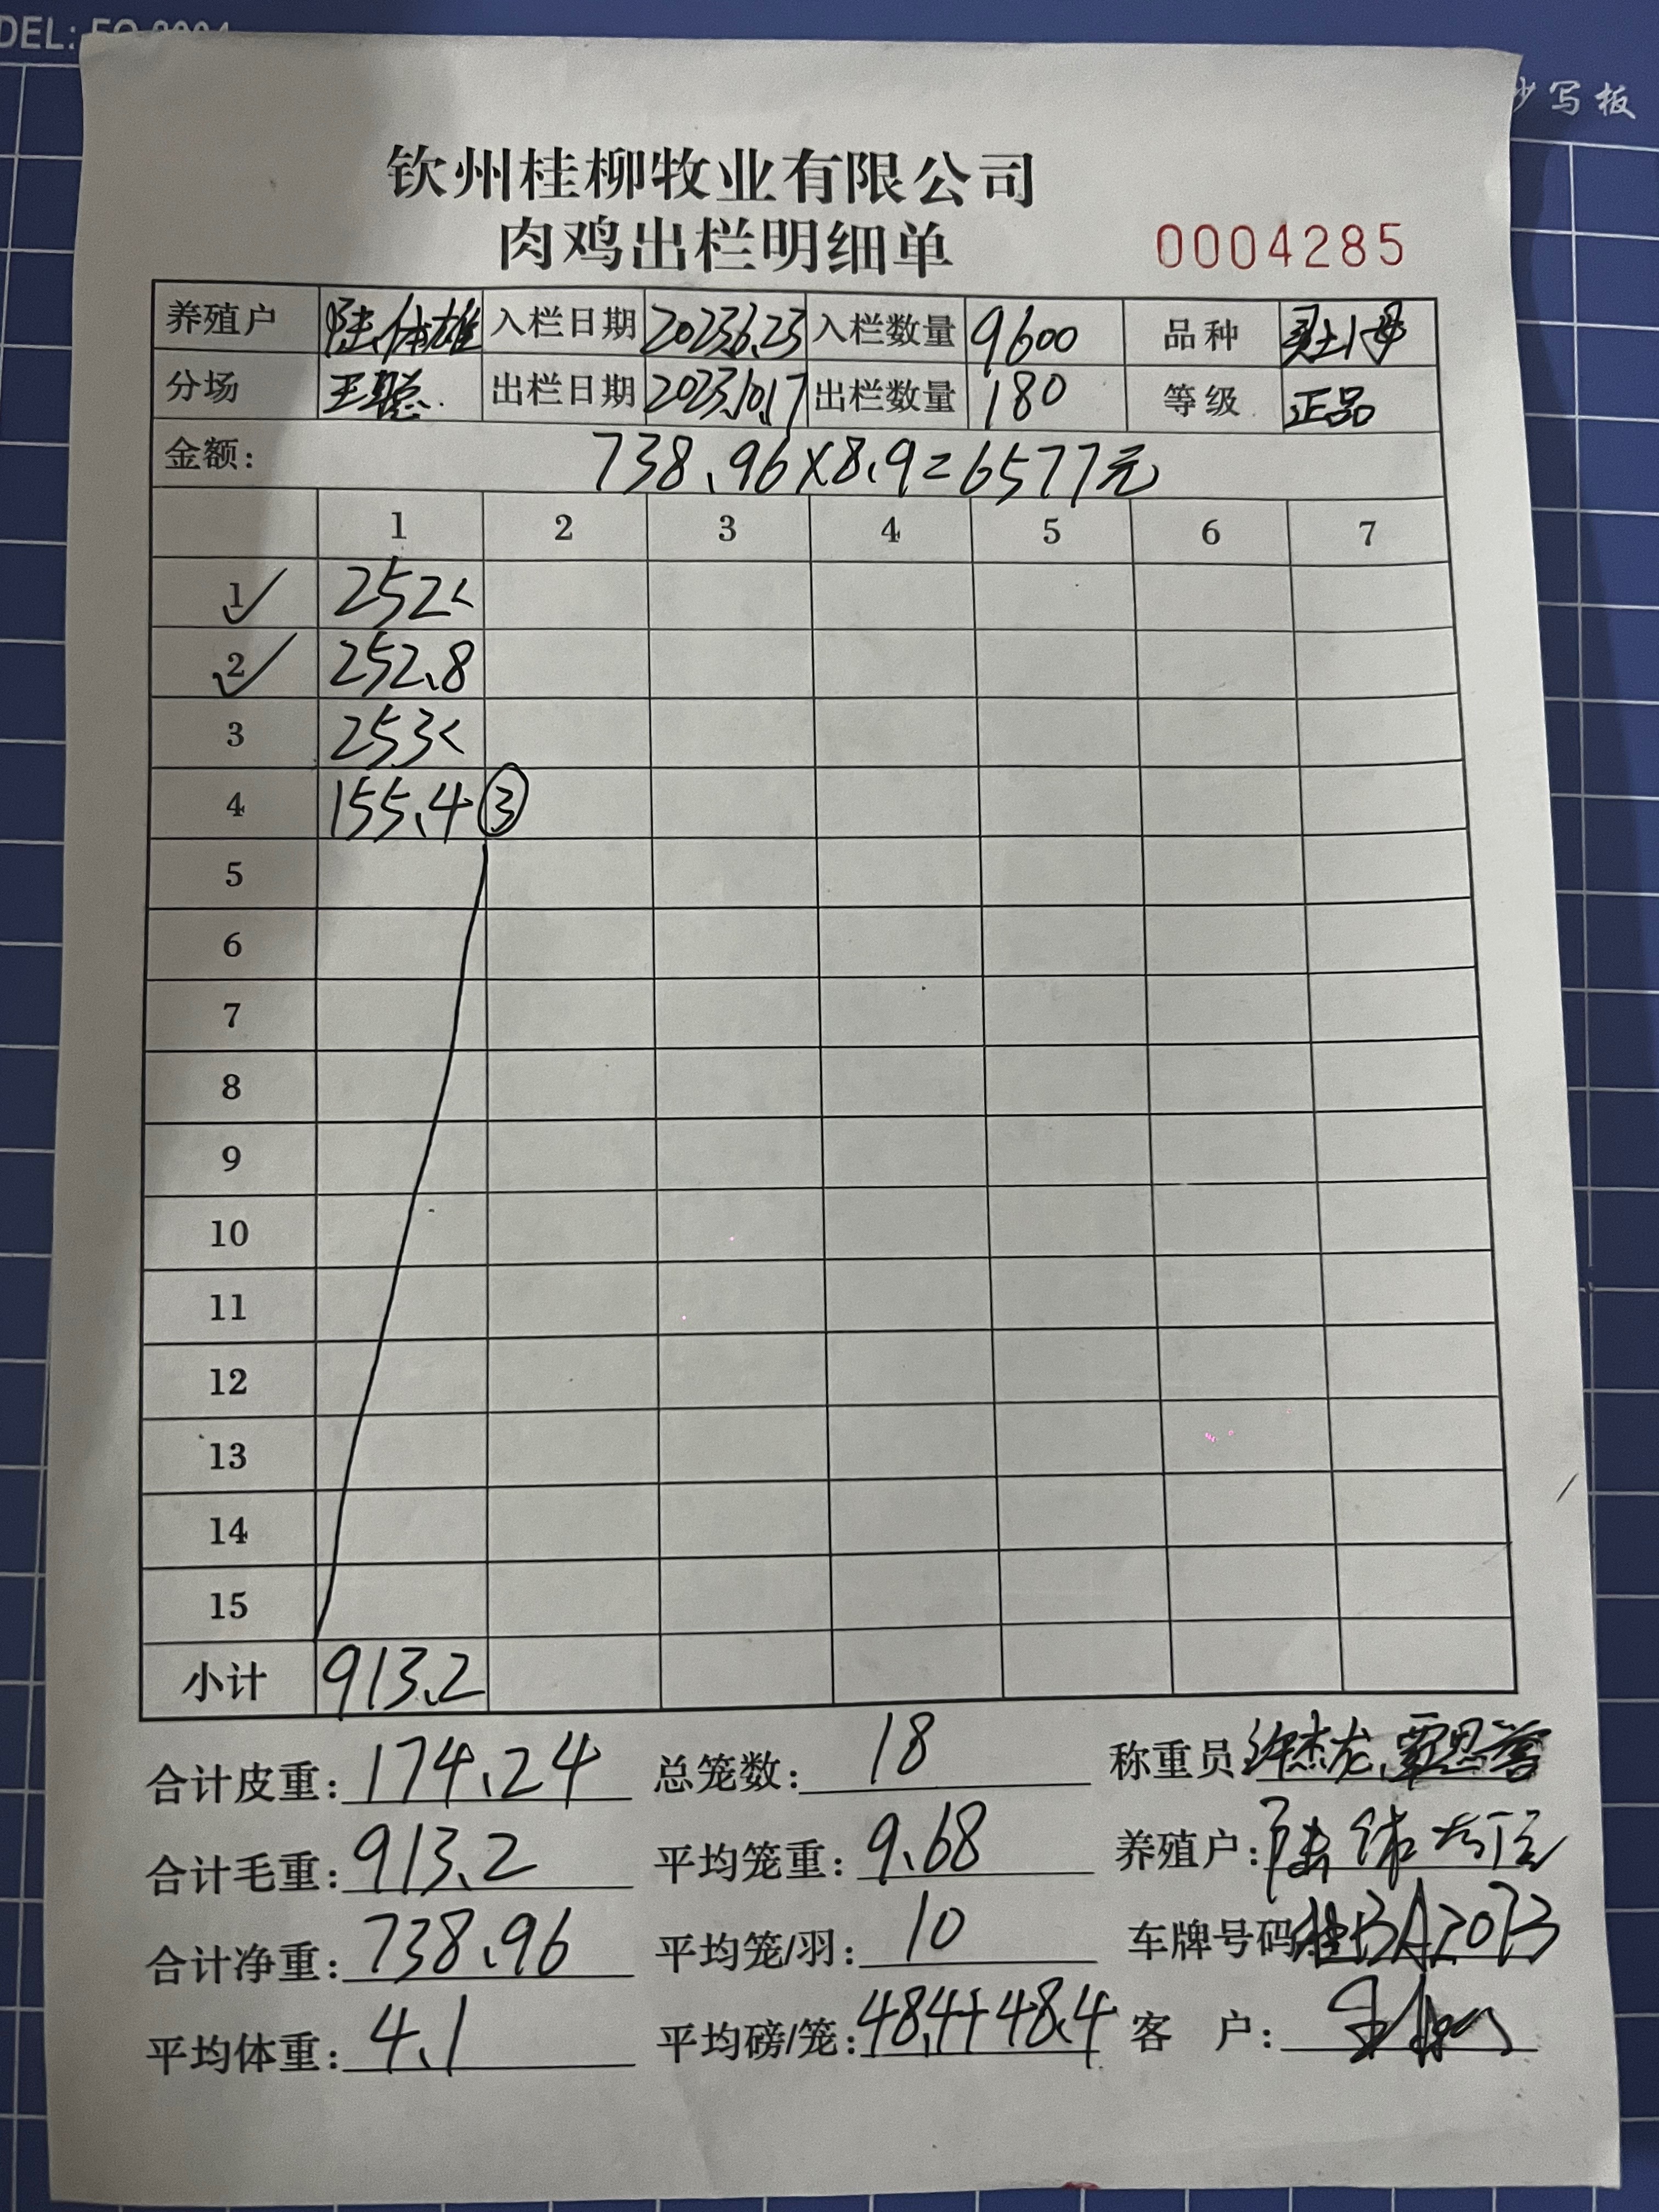 抄写板
钦州桂柳牧业有限公司
肉鸡出栏明细单 0004285
养殖户 陆体雄 入栏日期 2023.6.23 入栏数量 9600 品种
分场 王聪 出栏日期 2023.10.17 出栏数量 180 等级 正品
金额: 738.96×8.9=6577元
1 2 3 4 5 6 7
1 252
2 252.8
3 253
4 155.4 ③
5
6
7
8
9
10
11
12
13
14
15
小计 913.2
合计皮重: 174.24 总笼数: 18 称重员 许杰龙、
合计毛重: 913.2 平均笼重: 9.68 养殖户: 陆
合计净重: 738.96 平均笼/羽: 10 车牌号码 桂BA2013
平均体重: 4.1 平均磅/笼: 48.4+48.4 客户: